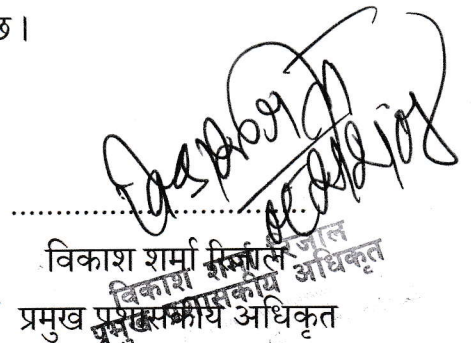 छ।
..............................
विकाश शर्मा रिजाल
प्रमुख प्रशासकीय अधिकृत
विकाश शर्मा रिजाल
प्रमुख प्रशासकीय अधिकृत